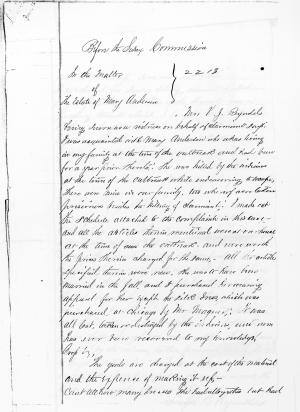 Before the Sioux Commission
In the Matter
of
The Estate of Mary Anderson
} 2213
Mrs V. J.
being sworn as witness on behalf of claimant says
I was acquainted with Mary Anderson who was living
in my family at the time of the outbreak and had been
for a year prior thereto. She was killed by the indians
at the time of the outbreak while endeavoring to escape,
there were nine in our family, two of whom were taken
prisoners besides the killing of claimant. I made out
the schedule attached to the complaint in this case
and all the articles therein mentioned were at our house
at the time of the outbreak and were worth
the prices therein charged for the same. All the articles
specified therein were new, she was to have been
married in the fall, and purchased her wearing
apparel for her the silk dress, which was
purchased at Chicago by Mr. Magner. It was
all lost, taken or destroyed by the indians, and none
has ever been recovered to my knowledge.
The goods are charged at the cost of the material
and the expense of making it up.
Cant tell how many dresses she had altogether but had